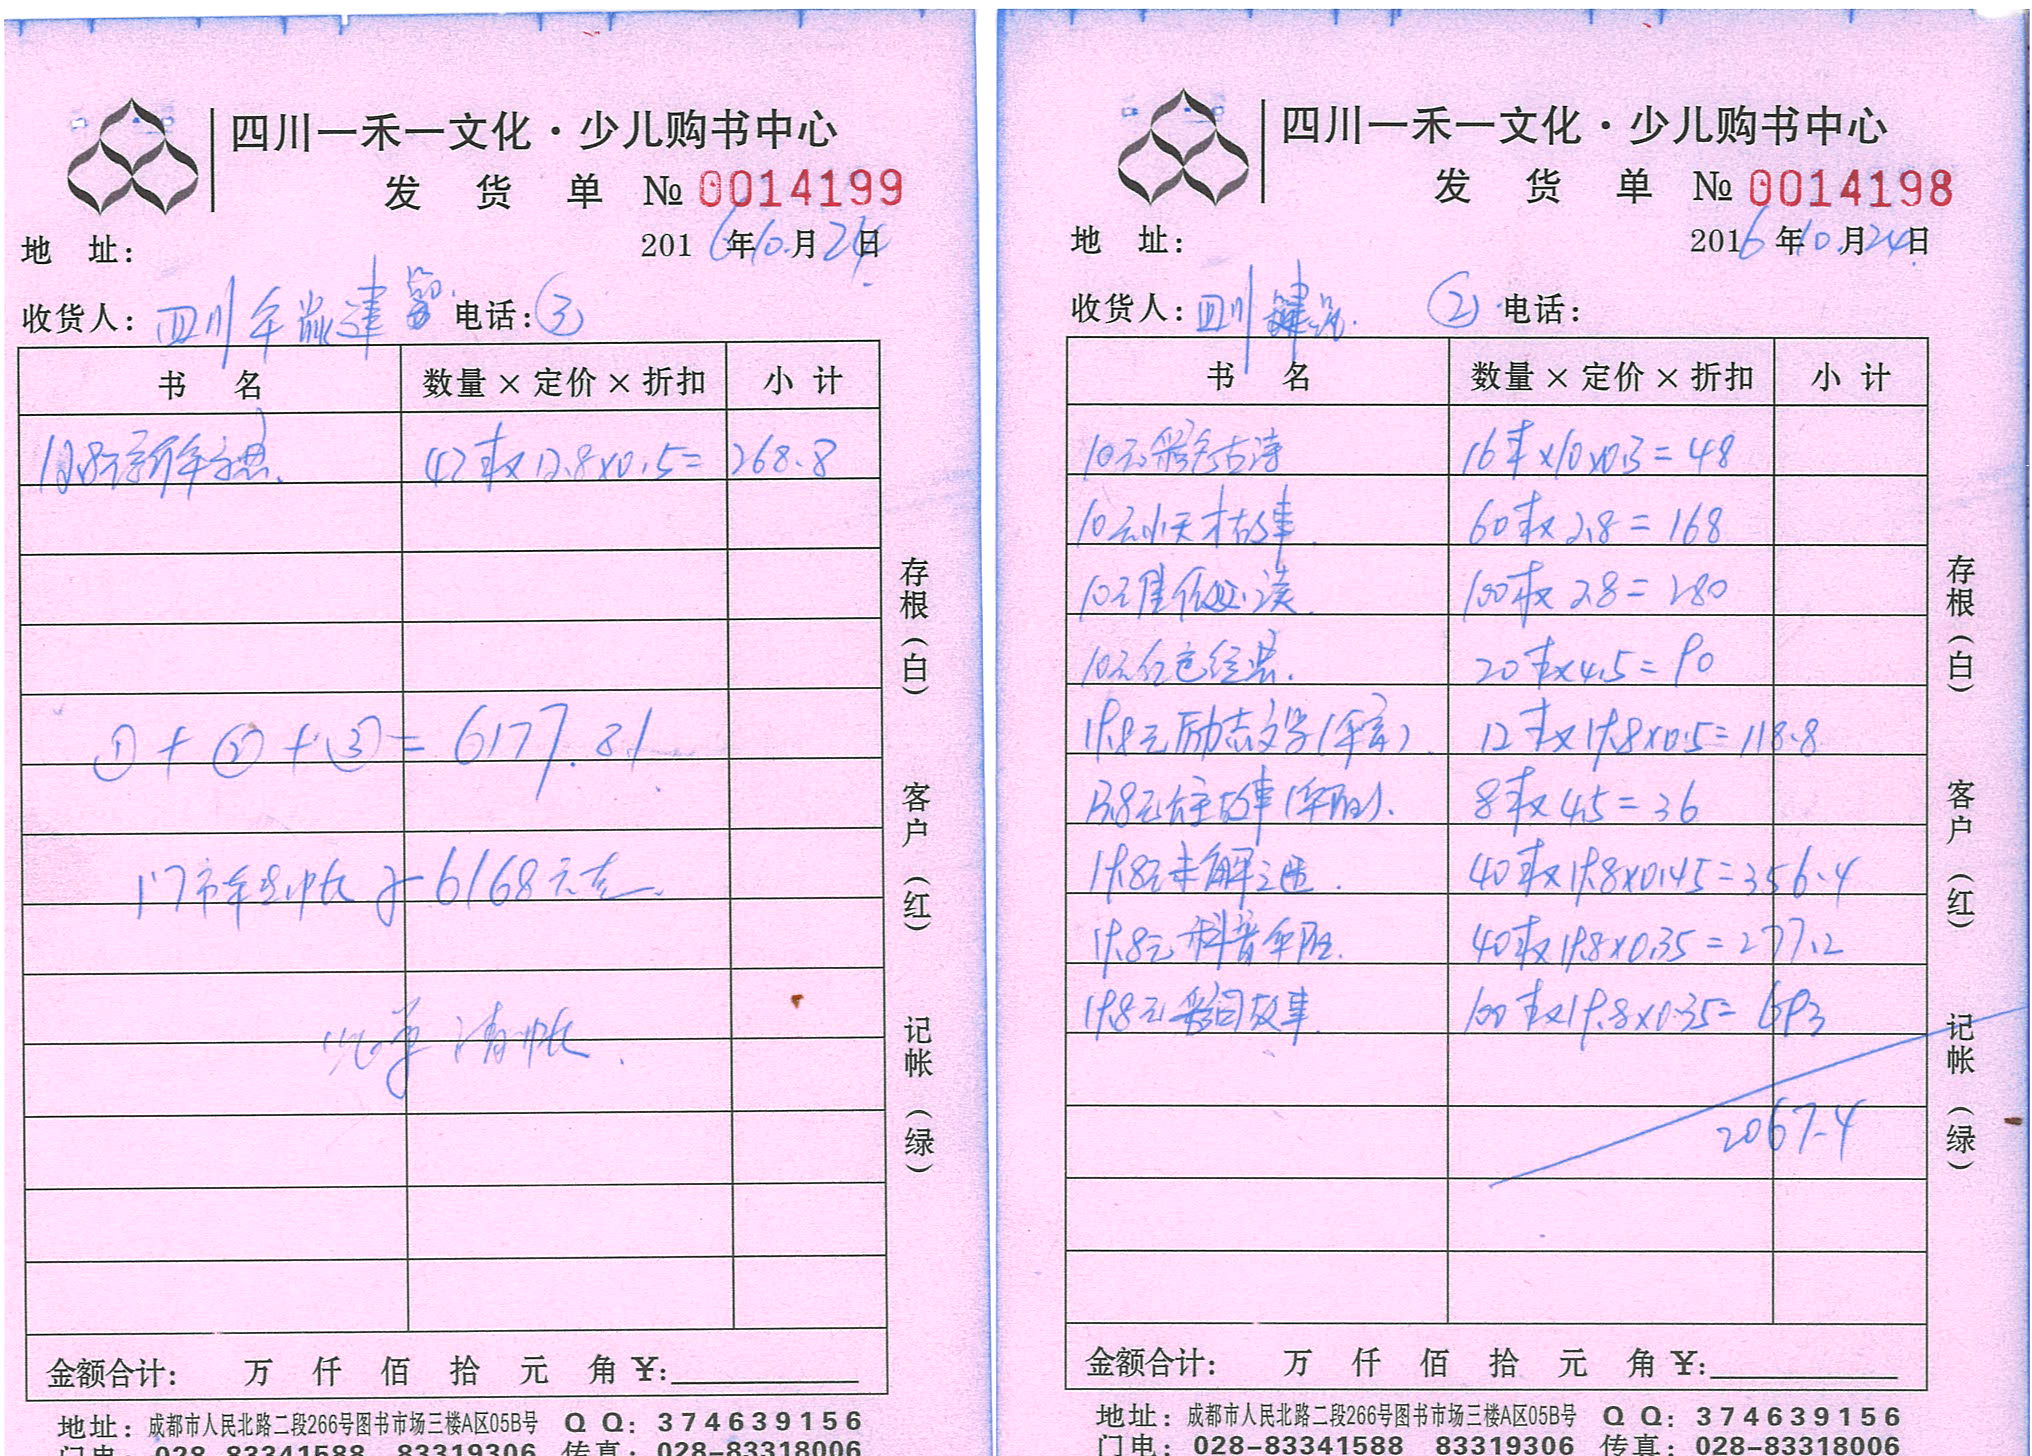 四川一禾一文化·少儿购书中心
发 货 单 № 0014199
地 址:
2016年10月24日
收货人: 四川 电话: ③
书 名 数量×定价×折扣 小 计
12.8元 字典 42本×12.8×0.5= 268.8
①+②+③= 6177.81
门市 6168元
清帐
存根(白) 客户(红) 记帐(绿)
金额合计: 万 仟 佰 拾 元 角 ¥:
地址: 成都市人民北路二段266号图书市场三楼A区05B号 QQ: 374639156
门电: 028-83341588 83319306 传真: 028-83318006
四川一禾一文化·少儿购书中心
发 货 单 № 0014198
地 址:
2016年10月24日
收货人: 四川 ② 电话:
书 名 数量×定价×折扣 小 计
10元彩色古诗 16本×10×0.3=48
10元小天才故事 60本×2.8=168
10元 必读 100本×2.8=280
10元红色经典 20本×4.5=90
19.8元励志文学 12本×19.8×0.5=118.8
故事 8本×4.5=36
19.8元未解之谜 40本×19.8×0.45=356.4
19.8元科普 40本×19.8×0.35=277.2
19.8元 故事 100本×19.8×0.35=693
2067.4
存根(白) 客户(红) 记帐(绿)
金额合计: 万 仟 佰 拾 元 角 ¥:
地址: 成都市人民北路二段266号图书市场三楼A区05B号 QQ: 374639156
门电: 028-83341588 83319306 传真: 028-83318006